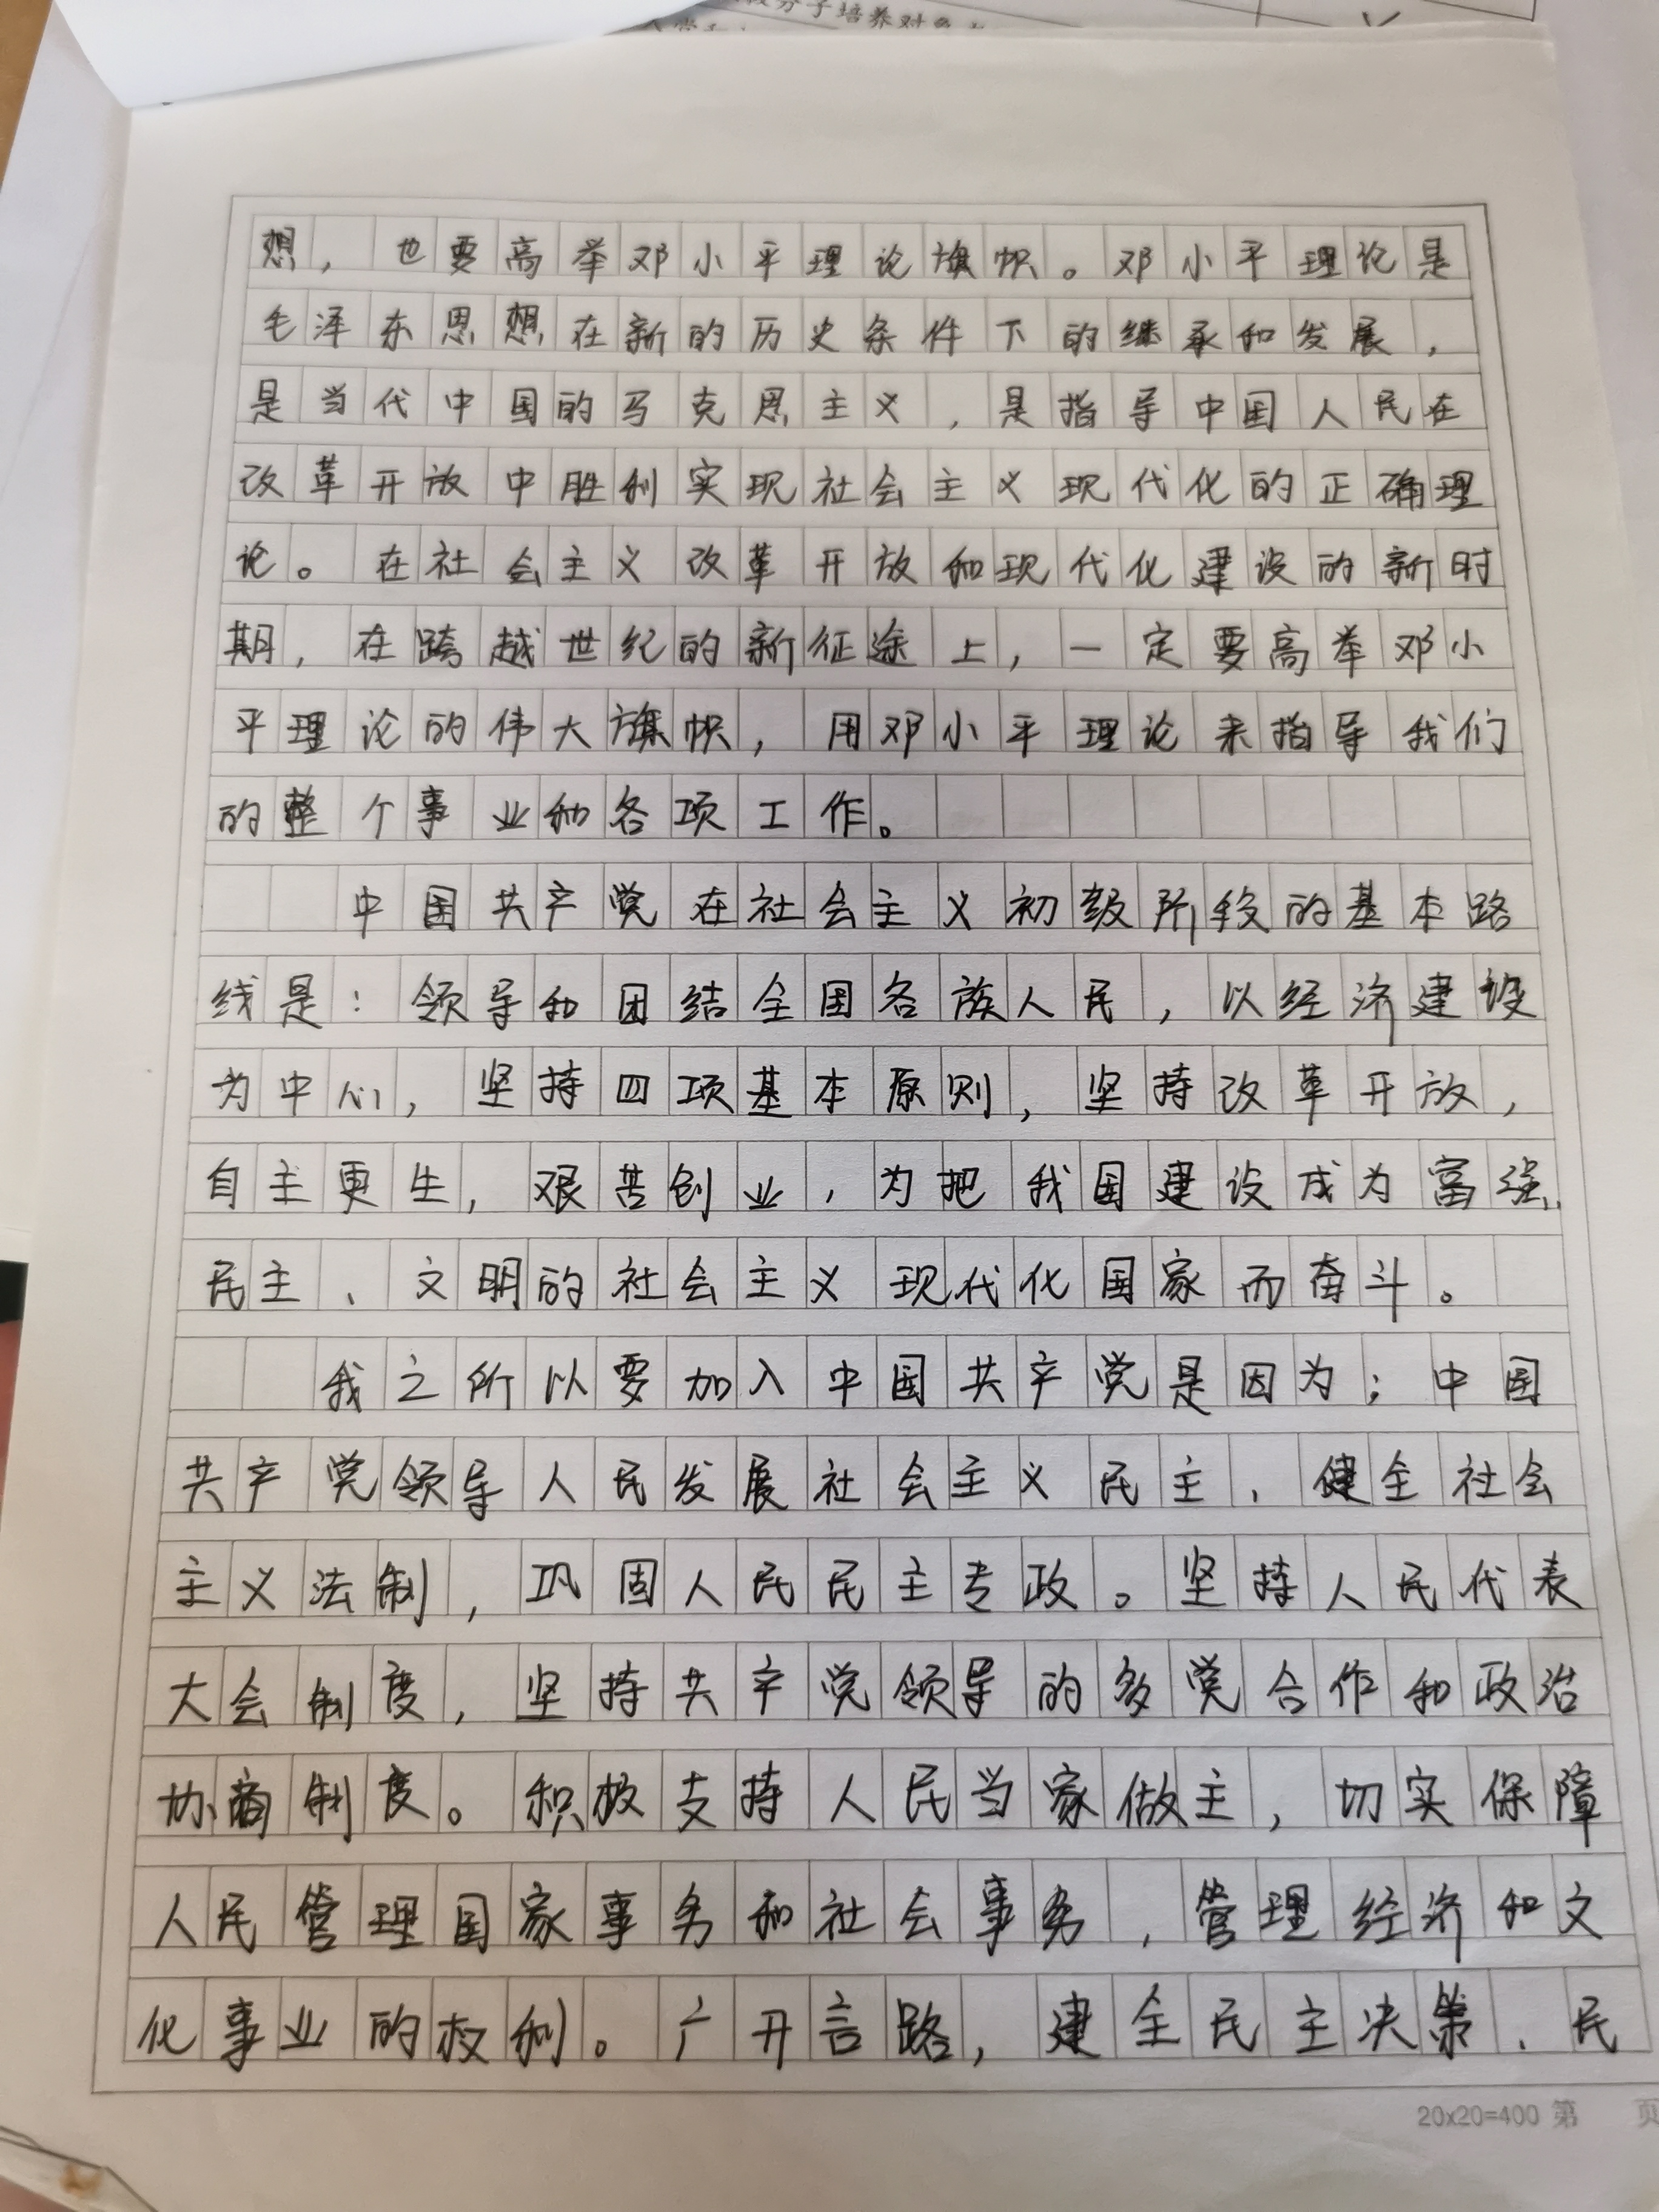 分子培养对象
想，也要高举邓小平理论旗帜。邓小平理论是
毛泽东思想在新的历史条件下的继承和发展，
是当代中国的马克思主义，是指导中国人民在
改革开放中胜利实现社会主义现代化的正确理
论。在社会主义改革开放和现代化建设的新时
期，在跨越世纪的新征途上，一定要高举邓小
平理论的伟大旗帜，用邓小平理论来指导我们
的整个事业和各项工作。
中国共产党在社会主义初级阶段的基本路
线是：领导和团结全国各族人民，以经济建设
为中心，坚持四项基本原则，坚持改革开放，
自主更生，艰苦创业，为把我国建设成为富强、
民主、文明的社会主义现代化国家而奋斗。
我之所以要加入中国共产党是因为；中国
共产党领导人民发展社会主义民主，健全社会
主义法制，巩固人民民主专政。坚持人民代表
大会制度，坚持共产党领导的多党合作和政治
协商制度。积极支持人民当家做主，切实保障
人民管理国家事务和社会事务，管理经济和文
化事业的权利。广开言路，建全民主决策、民
20x20=400 第 页